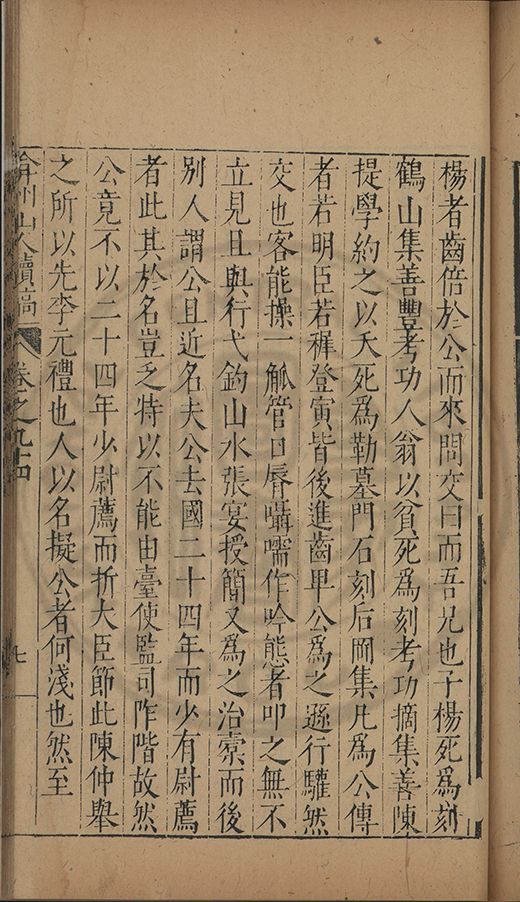 楊者齒倍於公而來問交曰而吾兄也子楊死為刻
鶴山集善豐考功人翁以貧死為刻考功摘集善陳
提學約之以夭死為勒墓門石刻后岡集凡為公傳
者若明臣若穉登寅皆後進齒卑公為之遜行驩然
交也客能操一觚管口脣囁嚅作吟態者叩之無不
立見且與行弋釣山水張宴授簡又為之治橐而後
別人謂公且近名夫公去國二十四年而少有尉薦
者此其於名豈乏特以不能由臺使監司阼階故然
公竟不以二十四年少尉薦而折大臣節此陳仲舉
之所以先李元禮也人以名擬公者何淺也然至
弇州山人續稿 卷之九十四 七